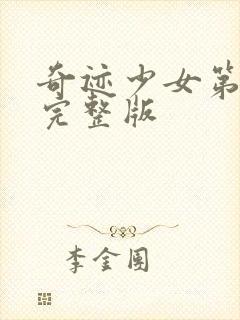 奇迹少女第
完整版
李金国